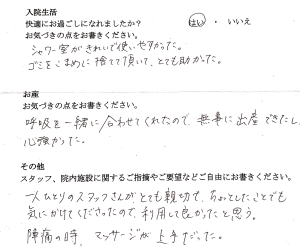 入院生活
快適にお過ごしになれましたか? はい ・ いいえ
お気づきの点をお書きください。
シャワー室がきれいで使いやすかった。
ゴミをこまめに捨てて頂いて、とても助かった。
お産
お気づきの点をお書きください。
呼吸を一緒に合わせてくれたので、無事に出産できたし、
心強かった。
その他
スタッフ、院内施設に関するご指摘やご要望などご自由にお書きください。
一人ひとりのスタッフさんが、とても親切で、ちょっとしたことでも
気にかけてくださったので、利用して良かったと思う。
陣痛の時、マッサージが上手だった。